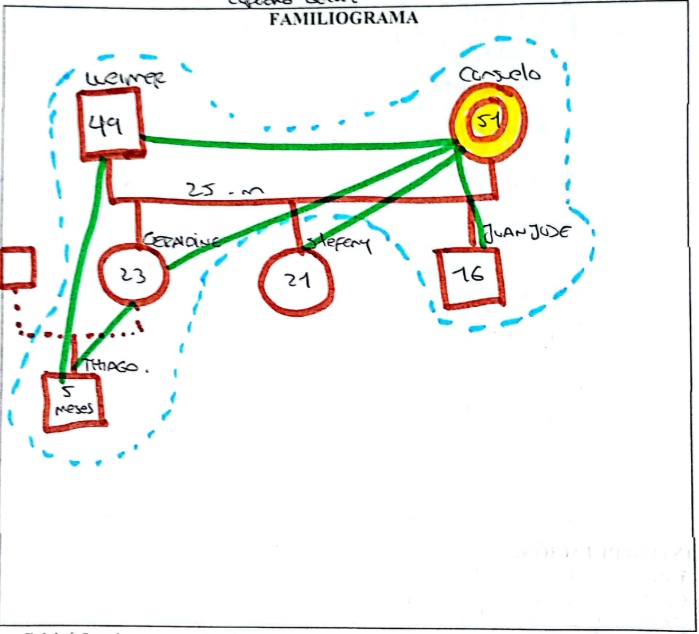 FAMILIOGRAMA
Weimer
Consuelo
49
51
25 - m
GERALDINE
Stefeny
JUAN JOSE
23
21
16
THIAGO.
5
meses